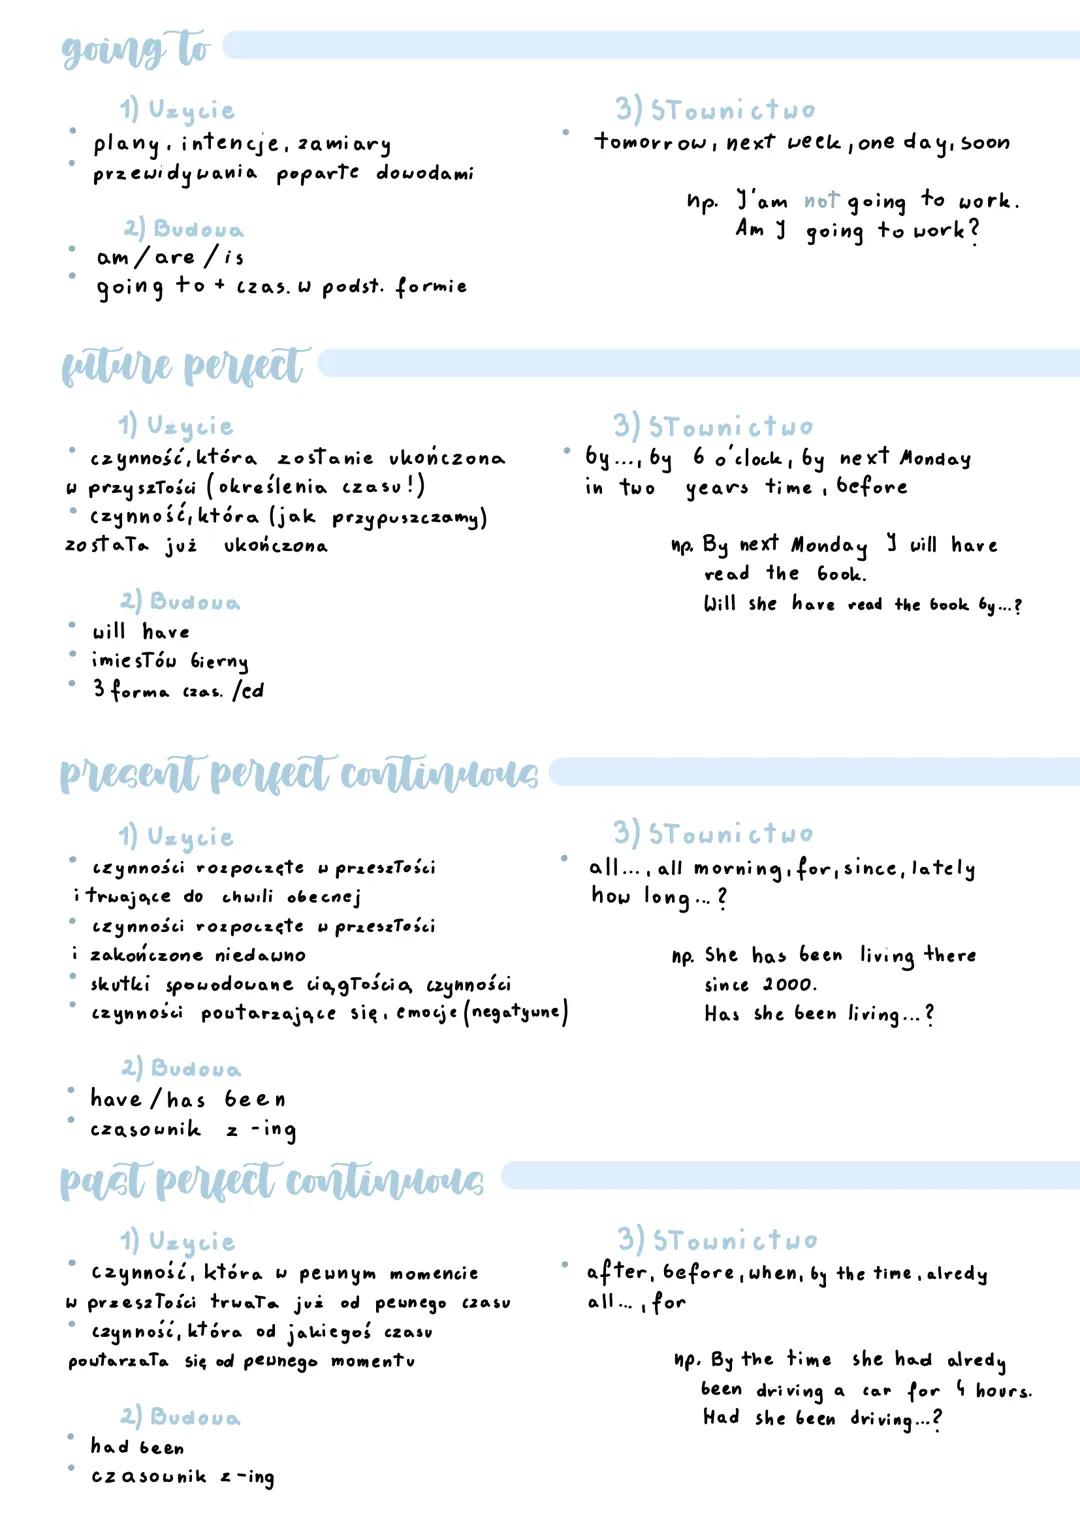 going to
1) Użycie
• plany, intencje, zamiary
• przewidywania poparte dowodami
2) Budowa
• am / are / is
• going to + czas. w podst. formie
3) Słownictwo
• tomorrow, next week, one day, soon
np. I'am not going to work.
Am I going to work?
future perfect
1) Użycie
• czynność, która zostanie ukończona
w przyszłości (określenia czasu!)
• czynność, która (jak przypuszczamy)
została już ukończona
2) Budowa
• will have
• imiesłów bierny
• 3 forma czas. /ed
3) Słownictwo
• by..., by 6 o'clock, by next Monday
in two years time, before
np. By next Monday I will have
read the book.
Will she have read the book by...?
present perfect continuous
1) Użycie
• czynności rozpoczęte w przeszłości
i trwające do chwili obecnej
• czynności rozpoczęte w przeszłości
i zakończone niedawno
• skutki spowodowane ciągłością czynności
• czynności powtarzające się, emocje (negatywne)
2) Budowa
• have / has been
• czasownik z -ing
3) Słownictwo
• all..., all morning, for, since, lately
how long...?
np. She has been living there
since 2000.
Has she been living...?
past perfect continuous
1) Użycie
• czynność, która w pewnym momencie
w przeszłości trwała już od pewnego czasu
• czynność, która od jakiegoś czasu
powtarzała się od pewnego momentu
2) Budowa
• had been
• czasownik z -ing
3) Słownictwo
• after, before, when, by the time, alredy
all..., for
np. By the time she had alredy
been driving a car for 4 hours.
Had she been driving...?